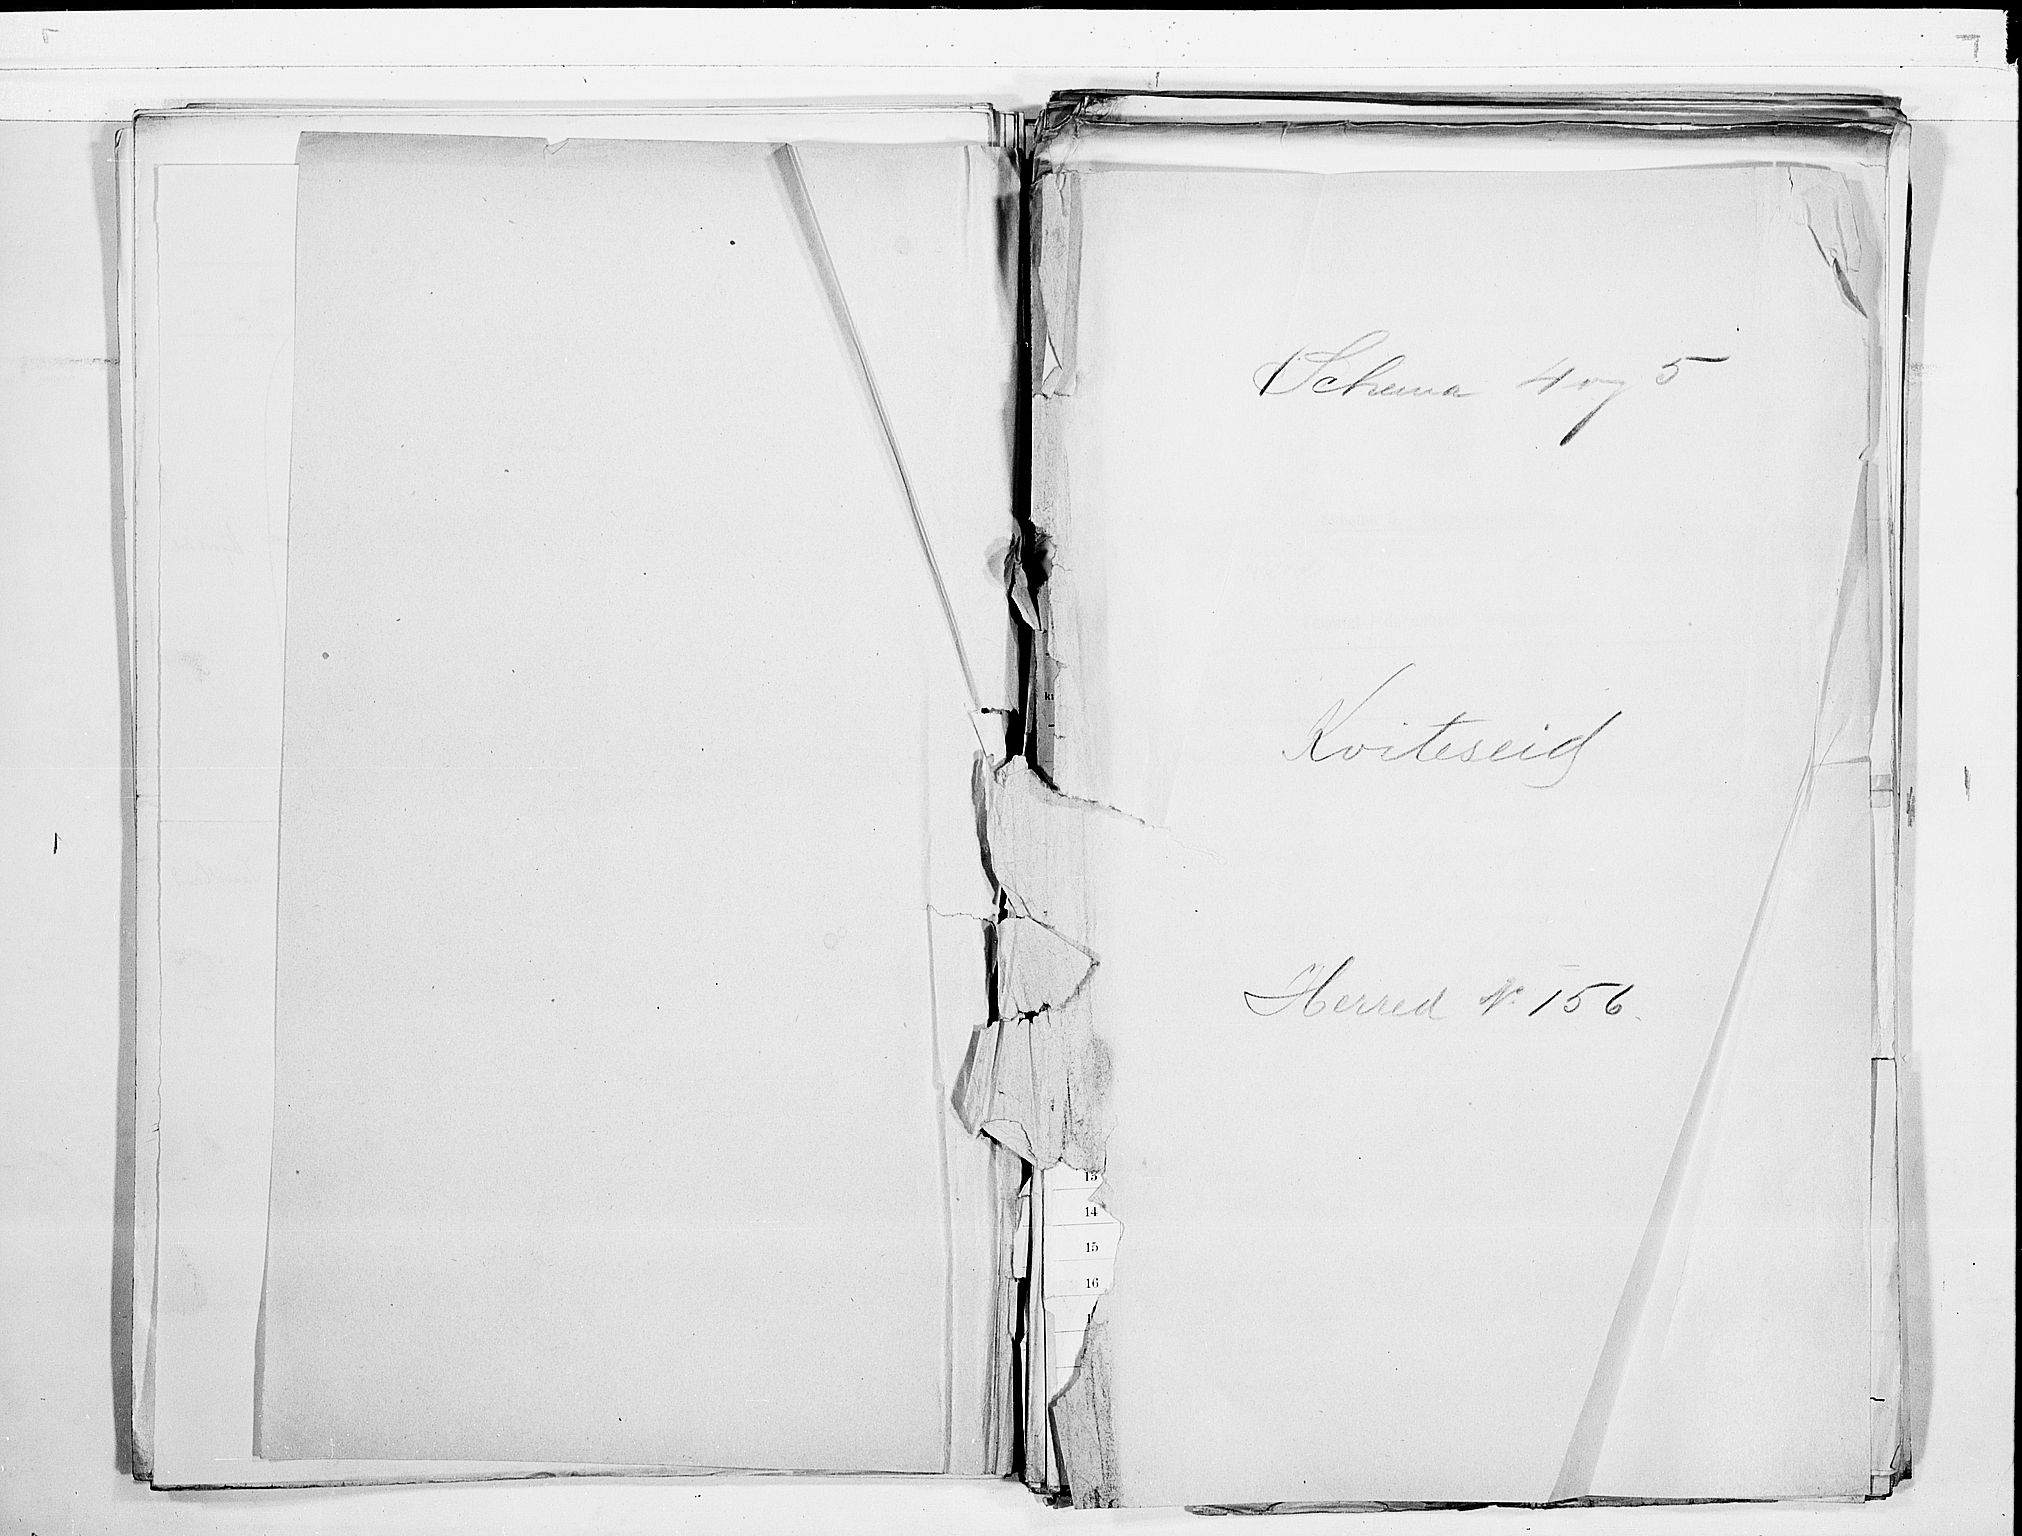 Schema 4 og 5
Kviteseid
Herred No 156.
13
14
15
16